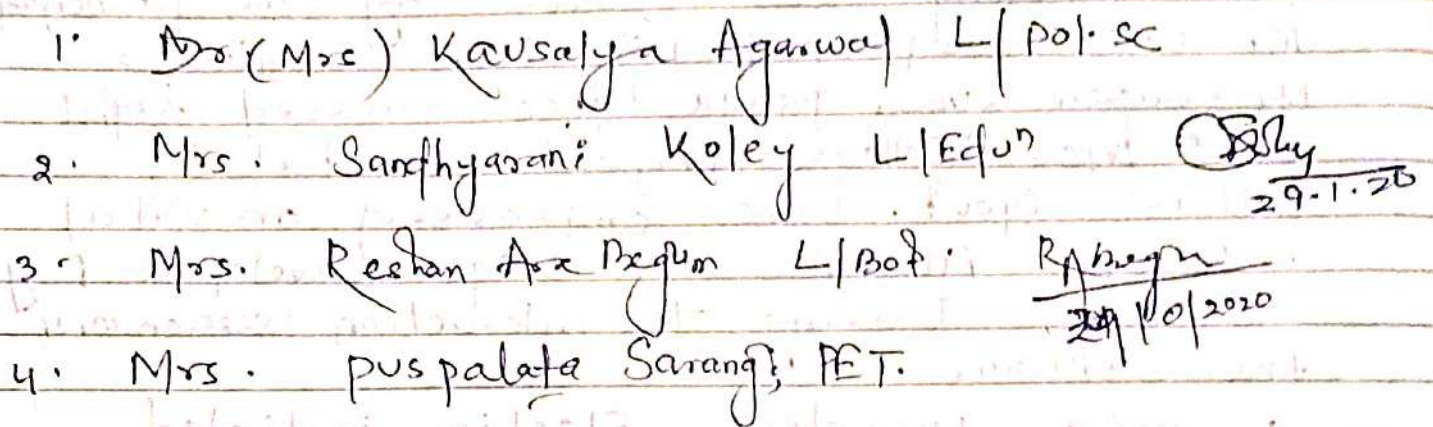 1. Dr (Mrs) Kausalya Agarwal L/pol.sc
2. Mrs. Sandhyarani Koley L/Edun
29.1.20
3. Mrs. Reshan Ara Begum L/Bot. RABegum
/2020
4. Mrs. puspalata Sarangi. PET.